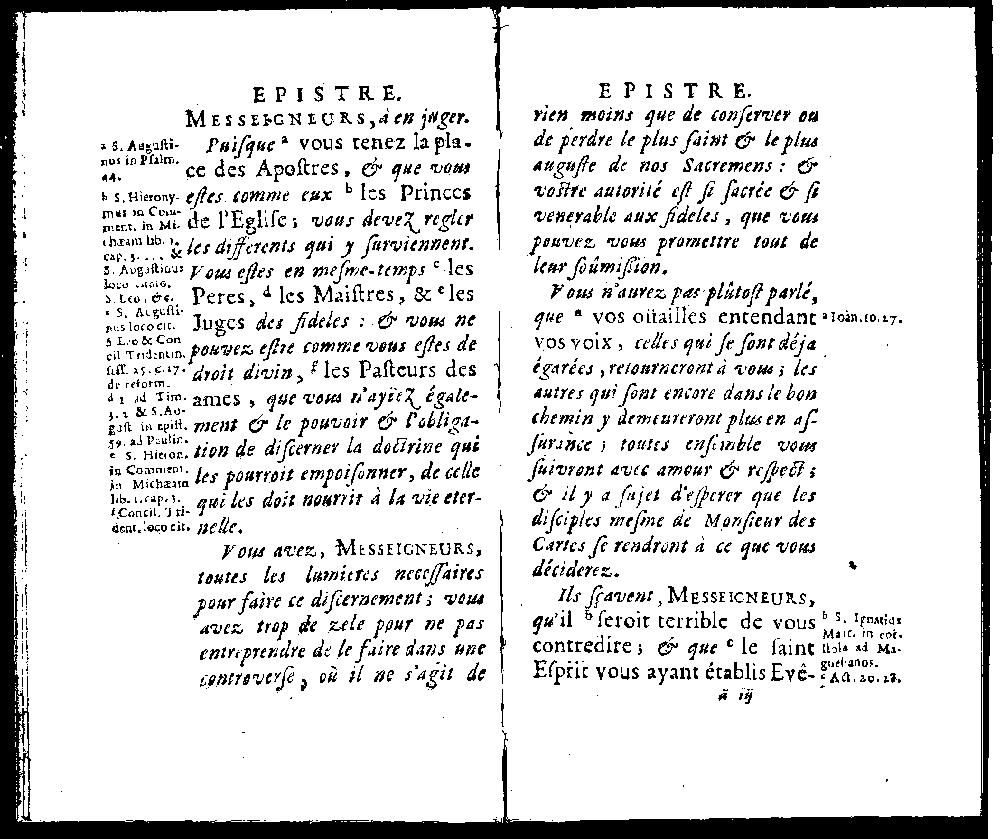 EPISTRE.
MESSEIGNEURS, à en juger.
Puiſque ᵃ vous tenez la pla-
ce des Apoſtres, & que vous
eſtes comme eux ᵇ les Princes
de l'Egliſe; vous devez regler
les differents qui y ſurviennent.
Vous eſtes en meſme-temps ᶜ les
Peres, ᵈ les Maiſtres, & ᵉ les
Juges des fideles : & vous ne
pouvez eſtre comme vous eſtes de
droit divin, ᶠ les Paſteurs des
ames, que vous n'ayïez égale-
ment & le pouvoir & l'obliga-
tion de diſcerner la doctrine qui
les pourroit empoiſonner, de celle
qui les doit nourrir à la vie eter-
nelle.
Vous avez, MESSEIGNEURS,
toutes les lumieres neceſſaires
pour faire ce diſcernement; vous
avez trop de zele pour ne pas
entreprendre de le faire dans une
controverſe, où il ne s'agit de
ᵃ S. Auguſti-
nus in Pſalm.
44.
ᵇ S. Hierony-
mus in Com-
ment. in Mi-
chæam lib. 1.
cap. 3. . . . &
S. Auguſtinus
loco citato.
S. Leo, &c.
ᶜ S. Auguſti-
nus loco cit.
S Leo & Con
cil Tridentin.
ſeſſ. 25. c. 17.
de reform.
ᵈ 1 ad Tim.
3. 2 & S. Au-
guſt in epiſt.
59. ad Paulin.
ᵉ S. Hieron.
in Comment.
in Michæam
lib. 1. cap. 3.
ᶠ Concil. Tri-
dent. loco cit.
EPISTRE.
rien moins que de conſerver ou
de perdre le plus ſaint & le plus
auguſte de nos Sacremens : &
voſtre autorité eſt ſi ſacrée & ſi
venerable aux fideles, que vous
pouvez vous promettre tout de
leur ſoûmiſſion.
Vous n'aurez pas plûtoſt parlé,
que ᵃ vos oüailles entendant
vos voix, celles qui ſe ſont déja
égarées, retourneront à vous; les
autres qui ſont encore dans le bon
chemin y demeureront plus en aſ-
ſurance; toutes enſemble vous
ſuivront avec amour & reſpect;
& il y a ſujet d'eſperer que les
diſciples meſme de Monſieur des
Cartes ſe rendront à ce que vous
déciderez.
Ils ſçavent, MESSEIGNEURS,
qu'il ᵇ ſeroit terrible de vous
contredire; & que ᶜ le ſaint
Eſprit vous ayant établis Evê-
ᵃ Ioan. 10. 27.
ᵇ S. Ignatius
Mart. in epi-
ſtola ad Ma-
gneſianos.
ᶜ Act. 20. 28.
ã iij